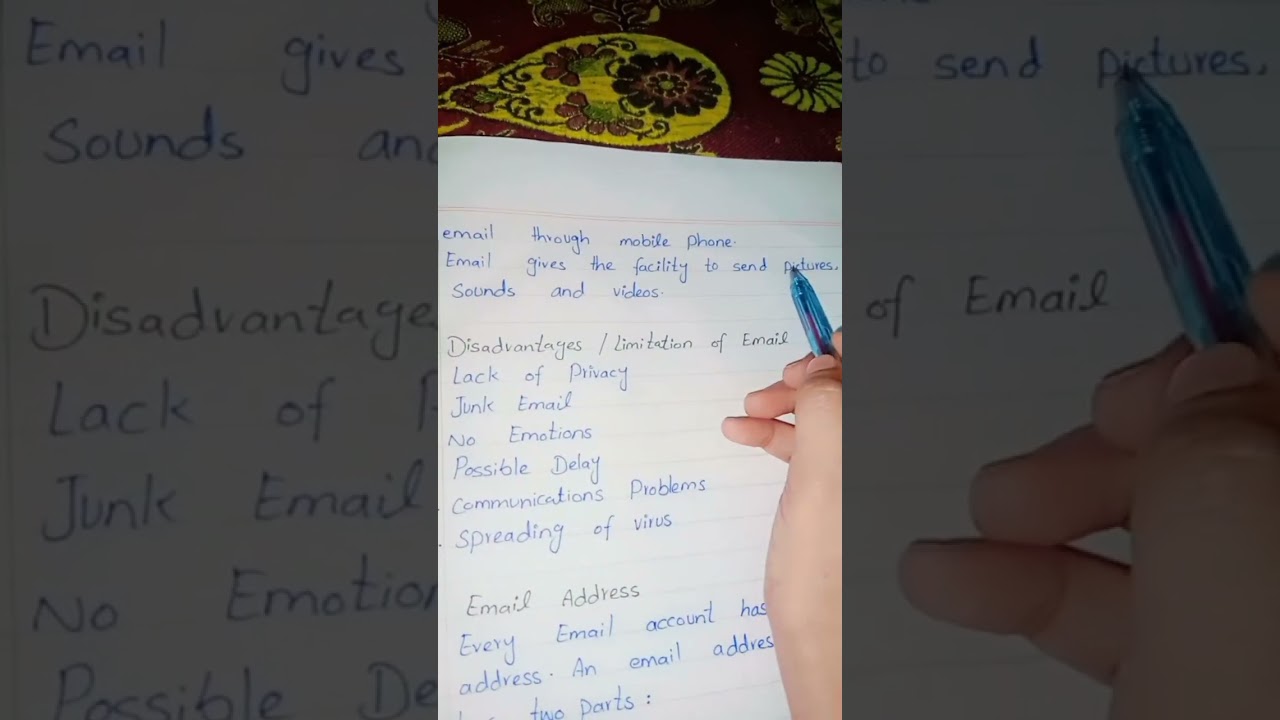 email through mobile phone.
Email gives the facility to send pictures,
Sounds and videos.
Disadvantages / Limitation of Email
Lack of Privacy
Junk Email
No Emotions
Possible Delay
Communications Problems
Spreading of virus
Email Address
Every Email account has
address. An email addres
two parts: